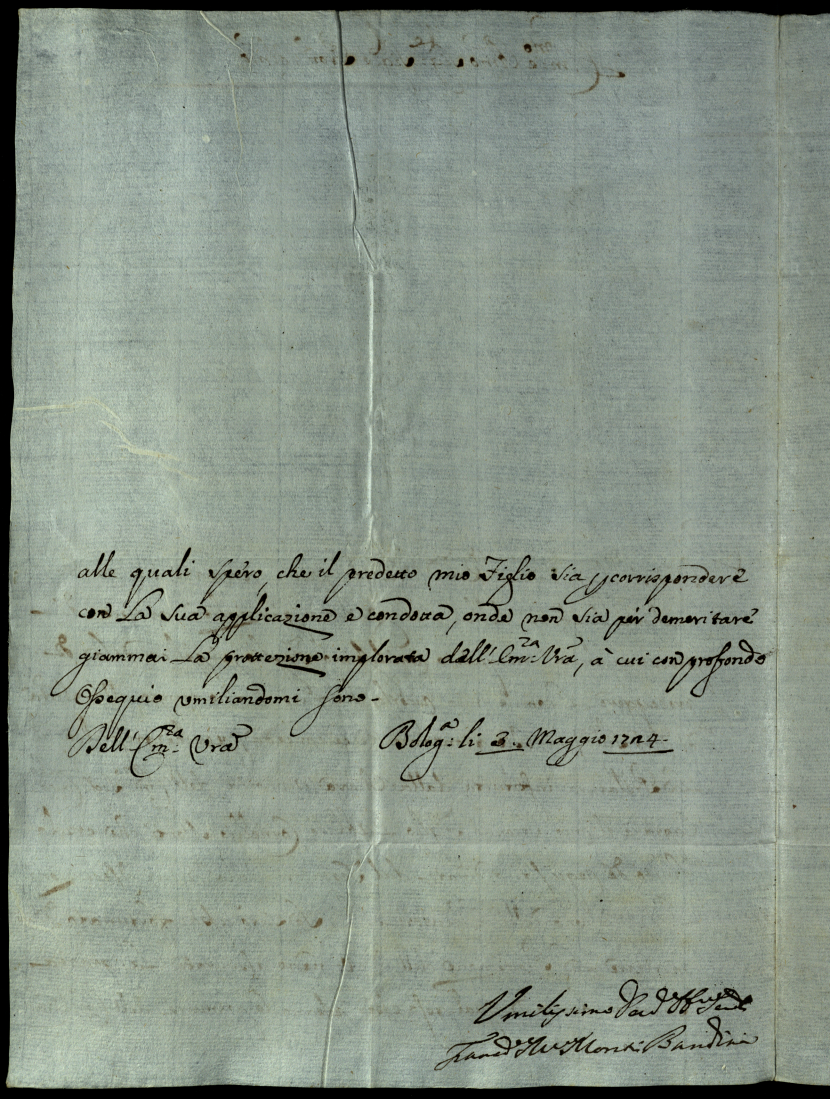 alle quali spero, che il predetto mio Figlio sia p corrispondere
con La sua applicazione e condotta, onde non sia per demeritare
giammai La protezione implorata dall' Em:za Vra, à cui con profondo
Ossequio umiliandomi sono -
Dell' Em:za Vra Bolog:a li 3. Maggio 1724
Umilissimo
Monti Bandini